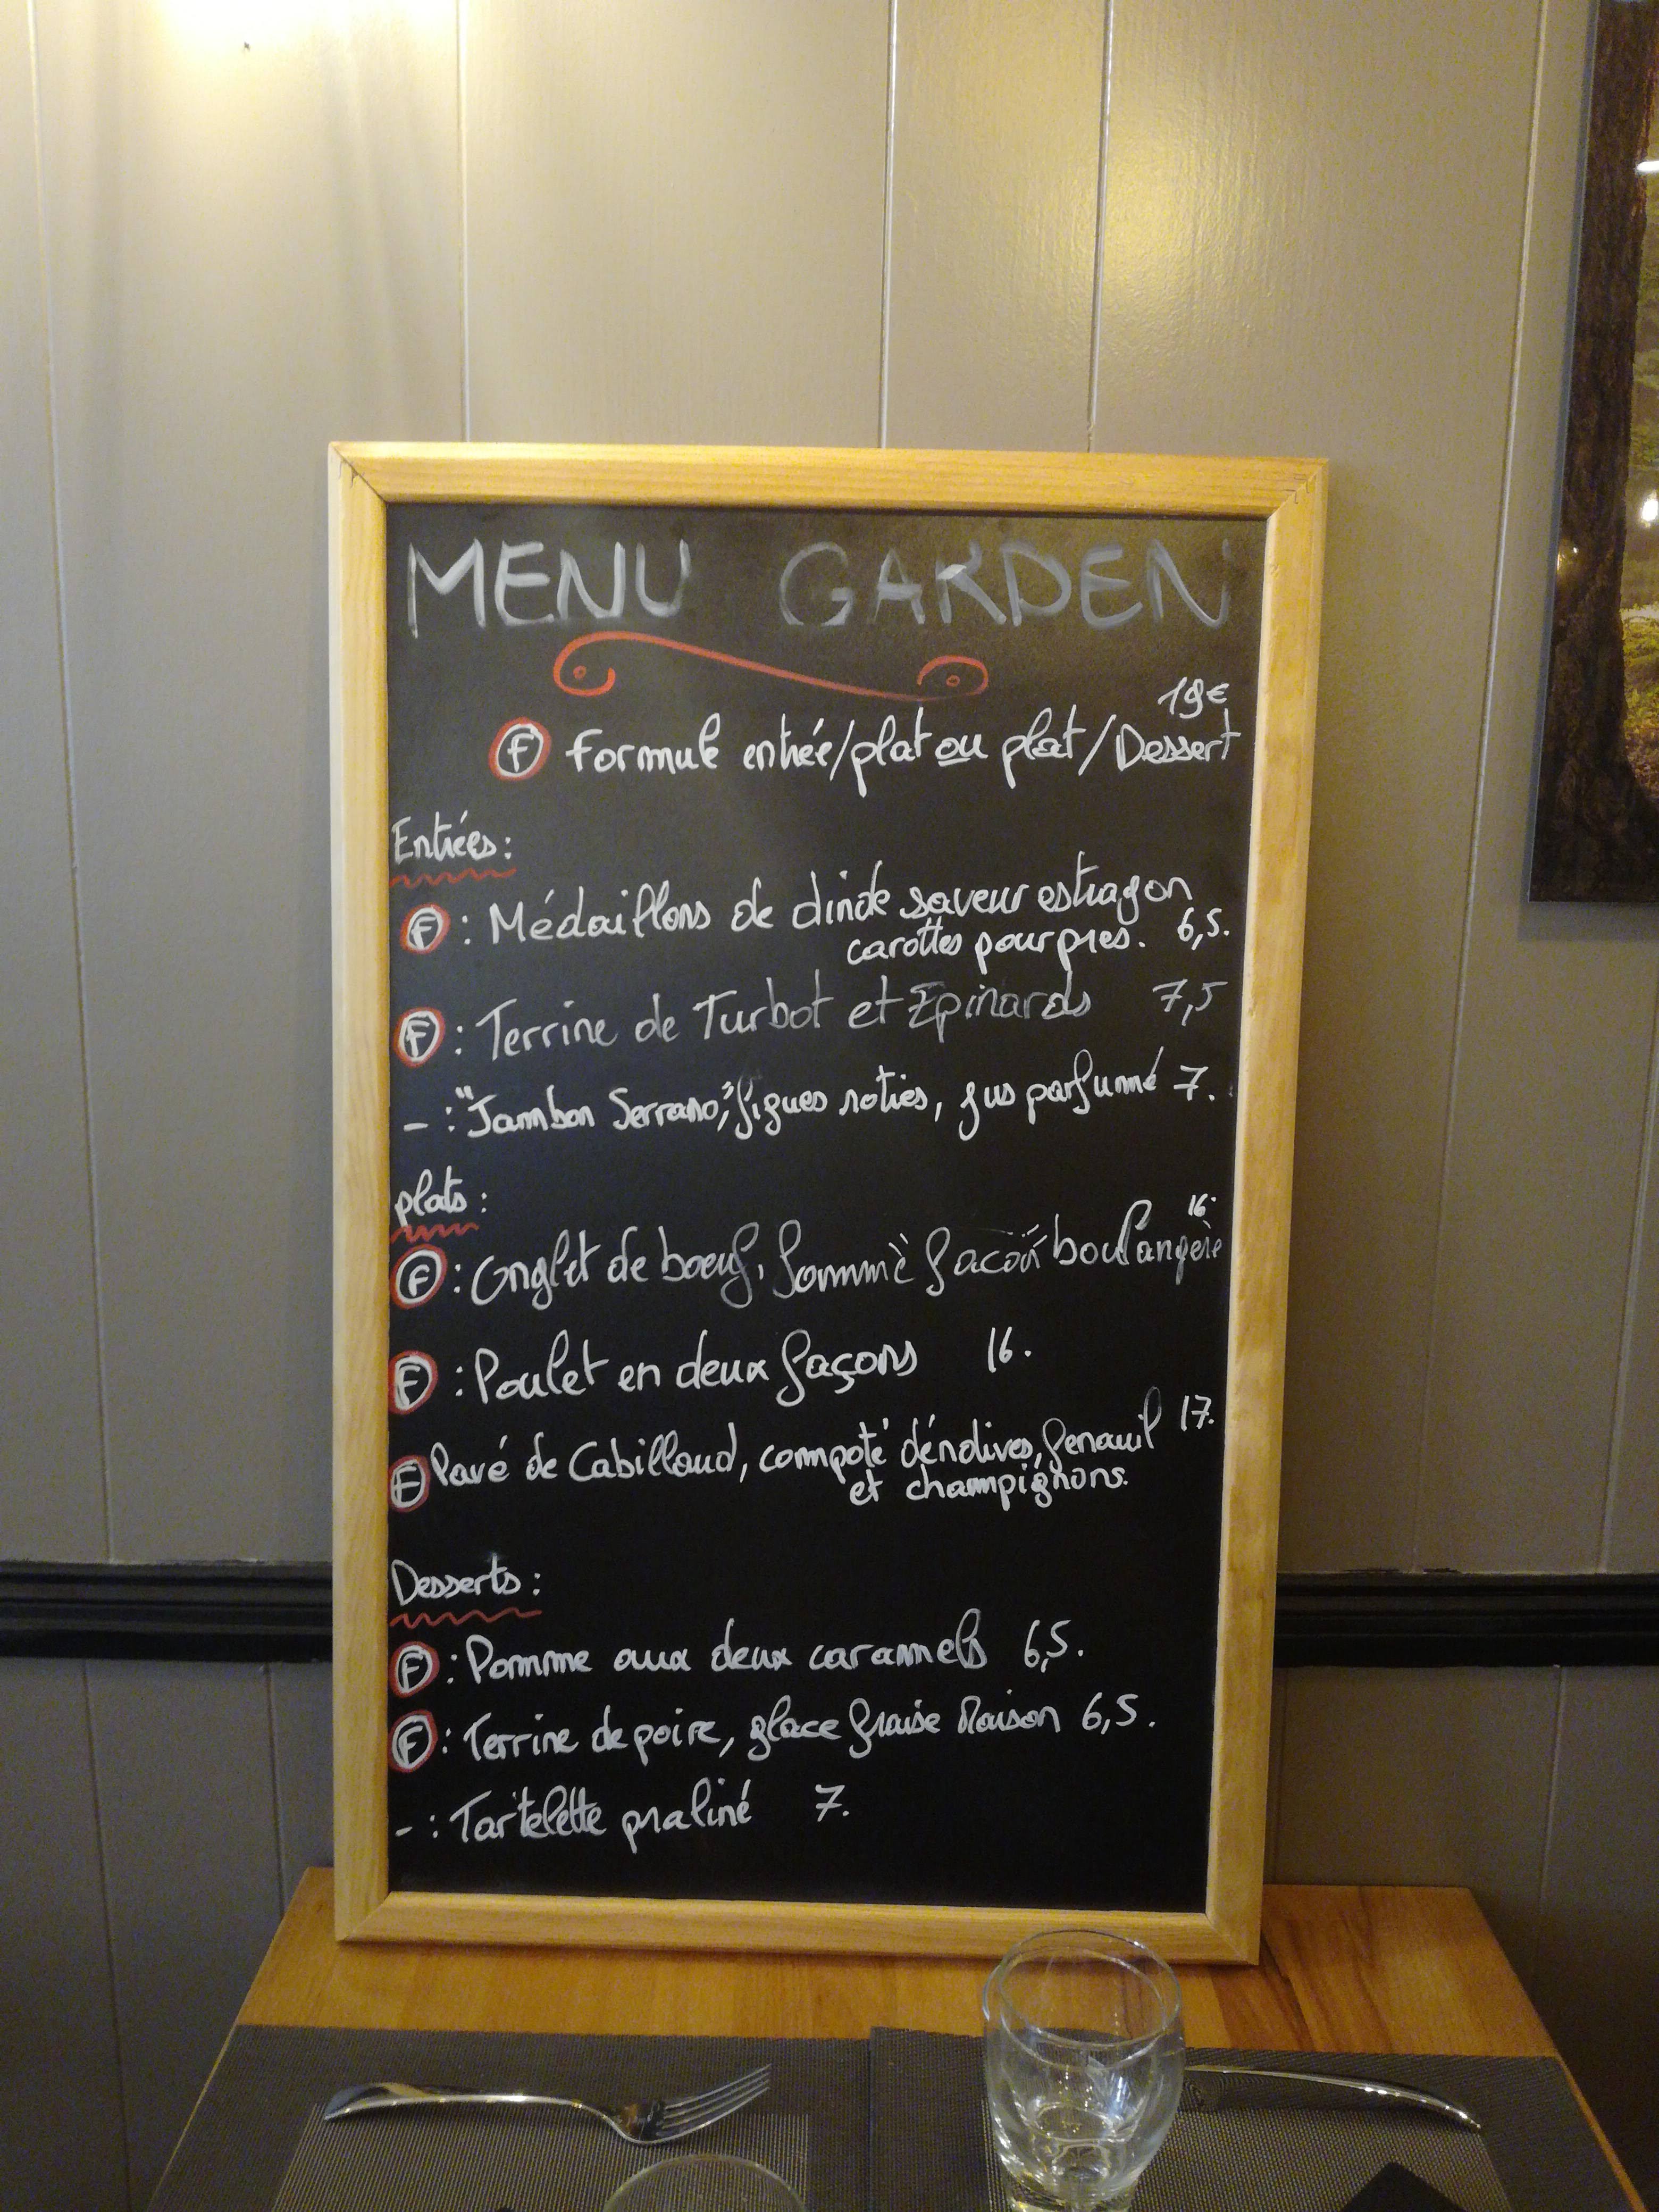 MENU GARDEN
19€
F Formule entrée/plat ou plat/Dessert
Entrées:
F : Médaillons de dinde saveur estragon
carottes pourpres. 6,5.
F : Terrine de Turbot et Epinards 7,5
- : "Jambon Serrano", figues roties, jus parfumé 7.
plats :
16.
F : Onglet de boeuf, pomme façon boulangère
F : Poulet en deux façons 16.
F Pavé de Cabillaud, compoté d'endives, fenouil 17.
et champignons.
Desserts :
F : Pomme aux deux caramels 6,5.
F : Terrine de poire, glace fraise Maison 6,5.
- : Tartelette praliné 7.